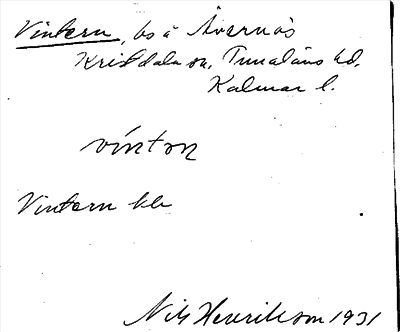 Vintern, bs å Åvernäs
Kristdala sn, Tunaläns hd.
Kalmar l.
vínton
Vintern kle
Nils Henrikson 1931